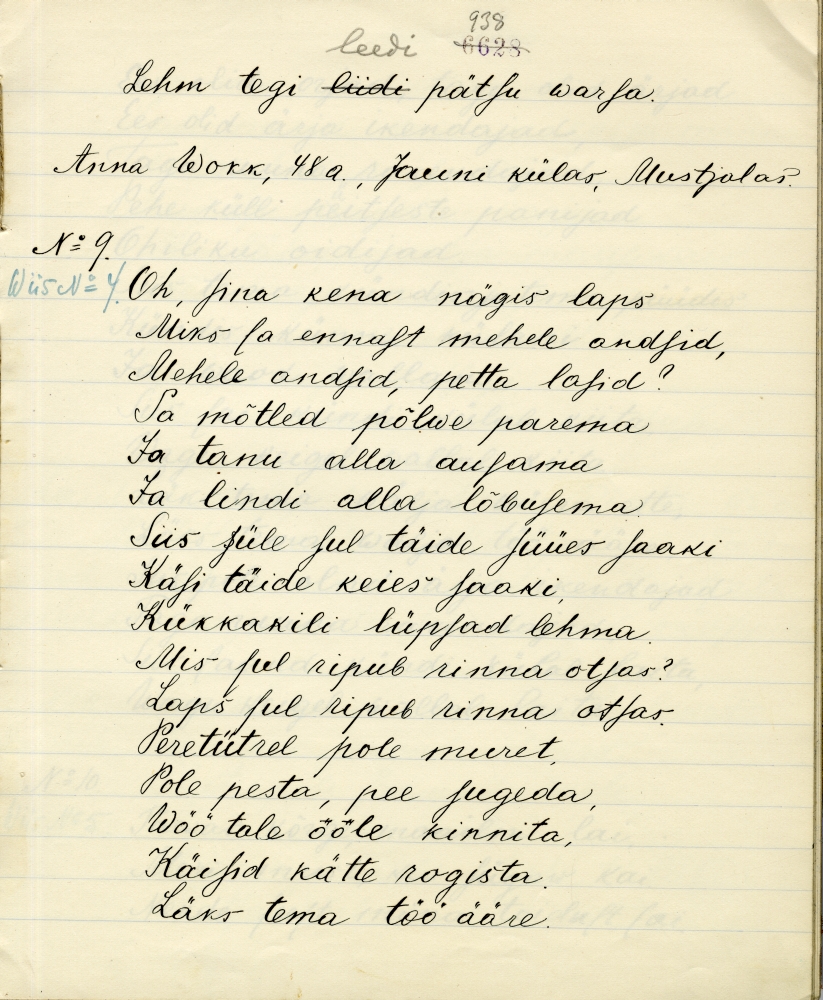 938
leedi 6628
Lehm tegi liidi pätsu warsa.
Anna Wokk, 48 a., Jauni külas, Mustjalas.
No 9.
Wiis No 4. Oh, sina kena nägis laps
Miks sa ennast mehele andsid,
Mehele andsid, petta lasid?
Sa mõtled põlwe parema
Ja tanu alla ausama
Ja lindi alla lõbusema.
Siis süle sul täide süües saaki
Käsi täide keies saaki,
Kükkakili lüpsad lehma.
Mis sul ripub rinna otsas?
Laps sul ripub rinna otsas.
Peretütrel pole muret,
Pole pesta, pee sugeda,
Wöö tale ööle kinnita,
Käisid kätte rogista.
Läks tema töö ääre.